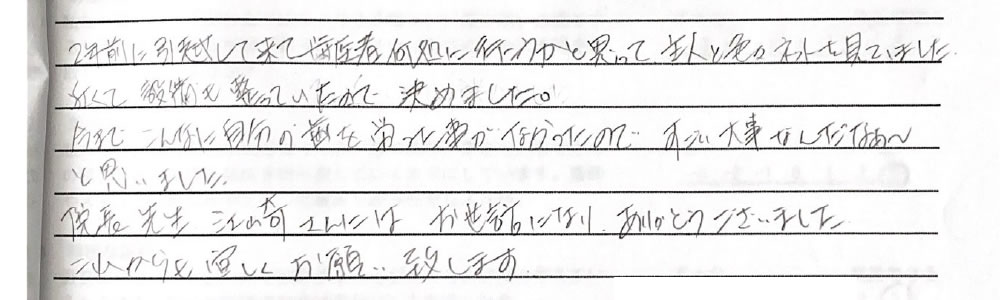 2年前に引越して来て歯医者何処に行こうかと思って主人と色々ネットを見ていました。
近くて設備も整っていたので決めました。
今までこんなに自分の歯を労った事がなかったので すごい大事なんだなあ〜
と思いました。
院長先生 江崎さんには お世話になり ありがとうございました
これからも宜しくお願い致します